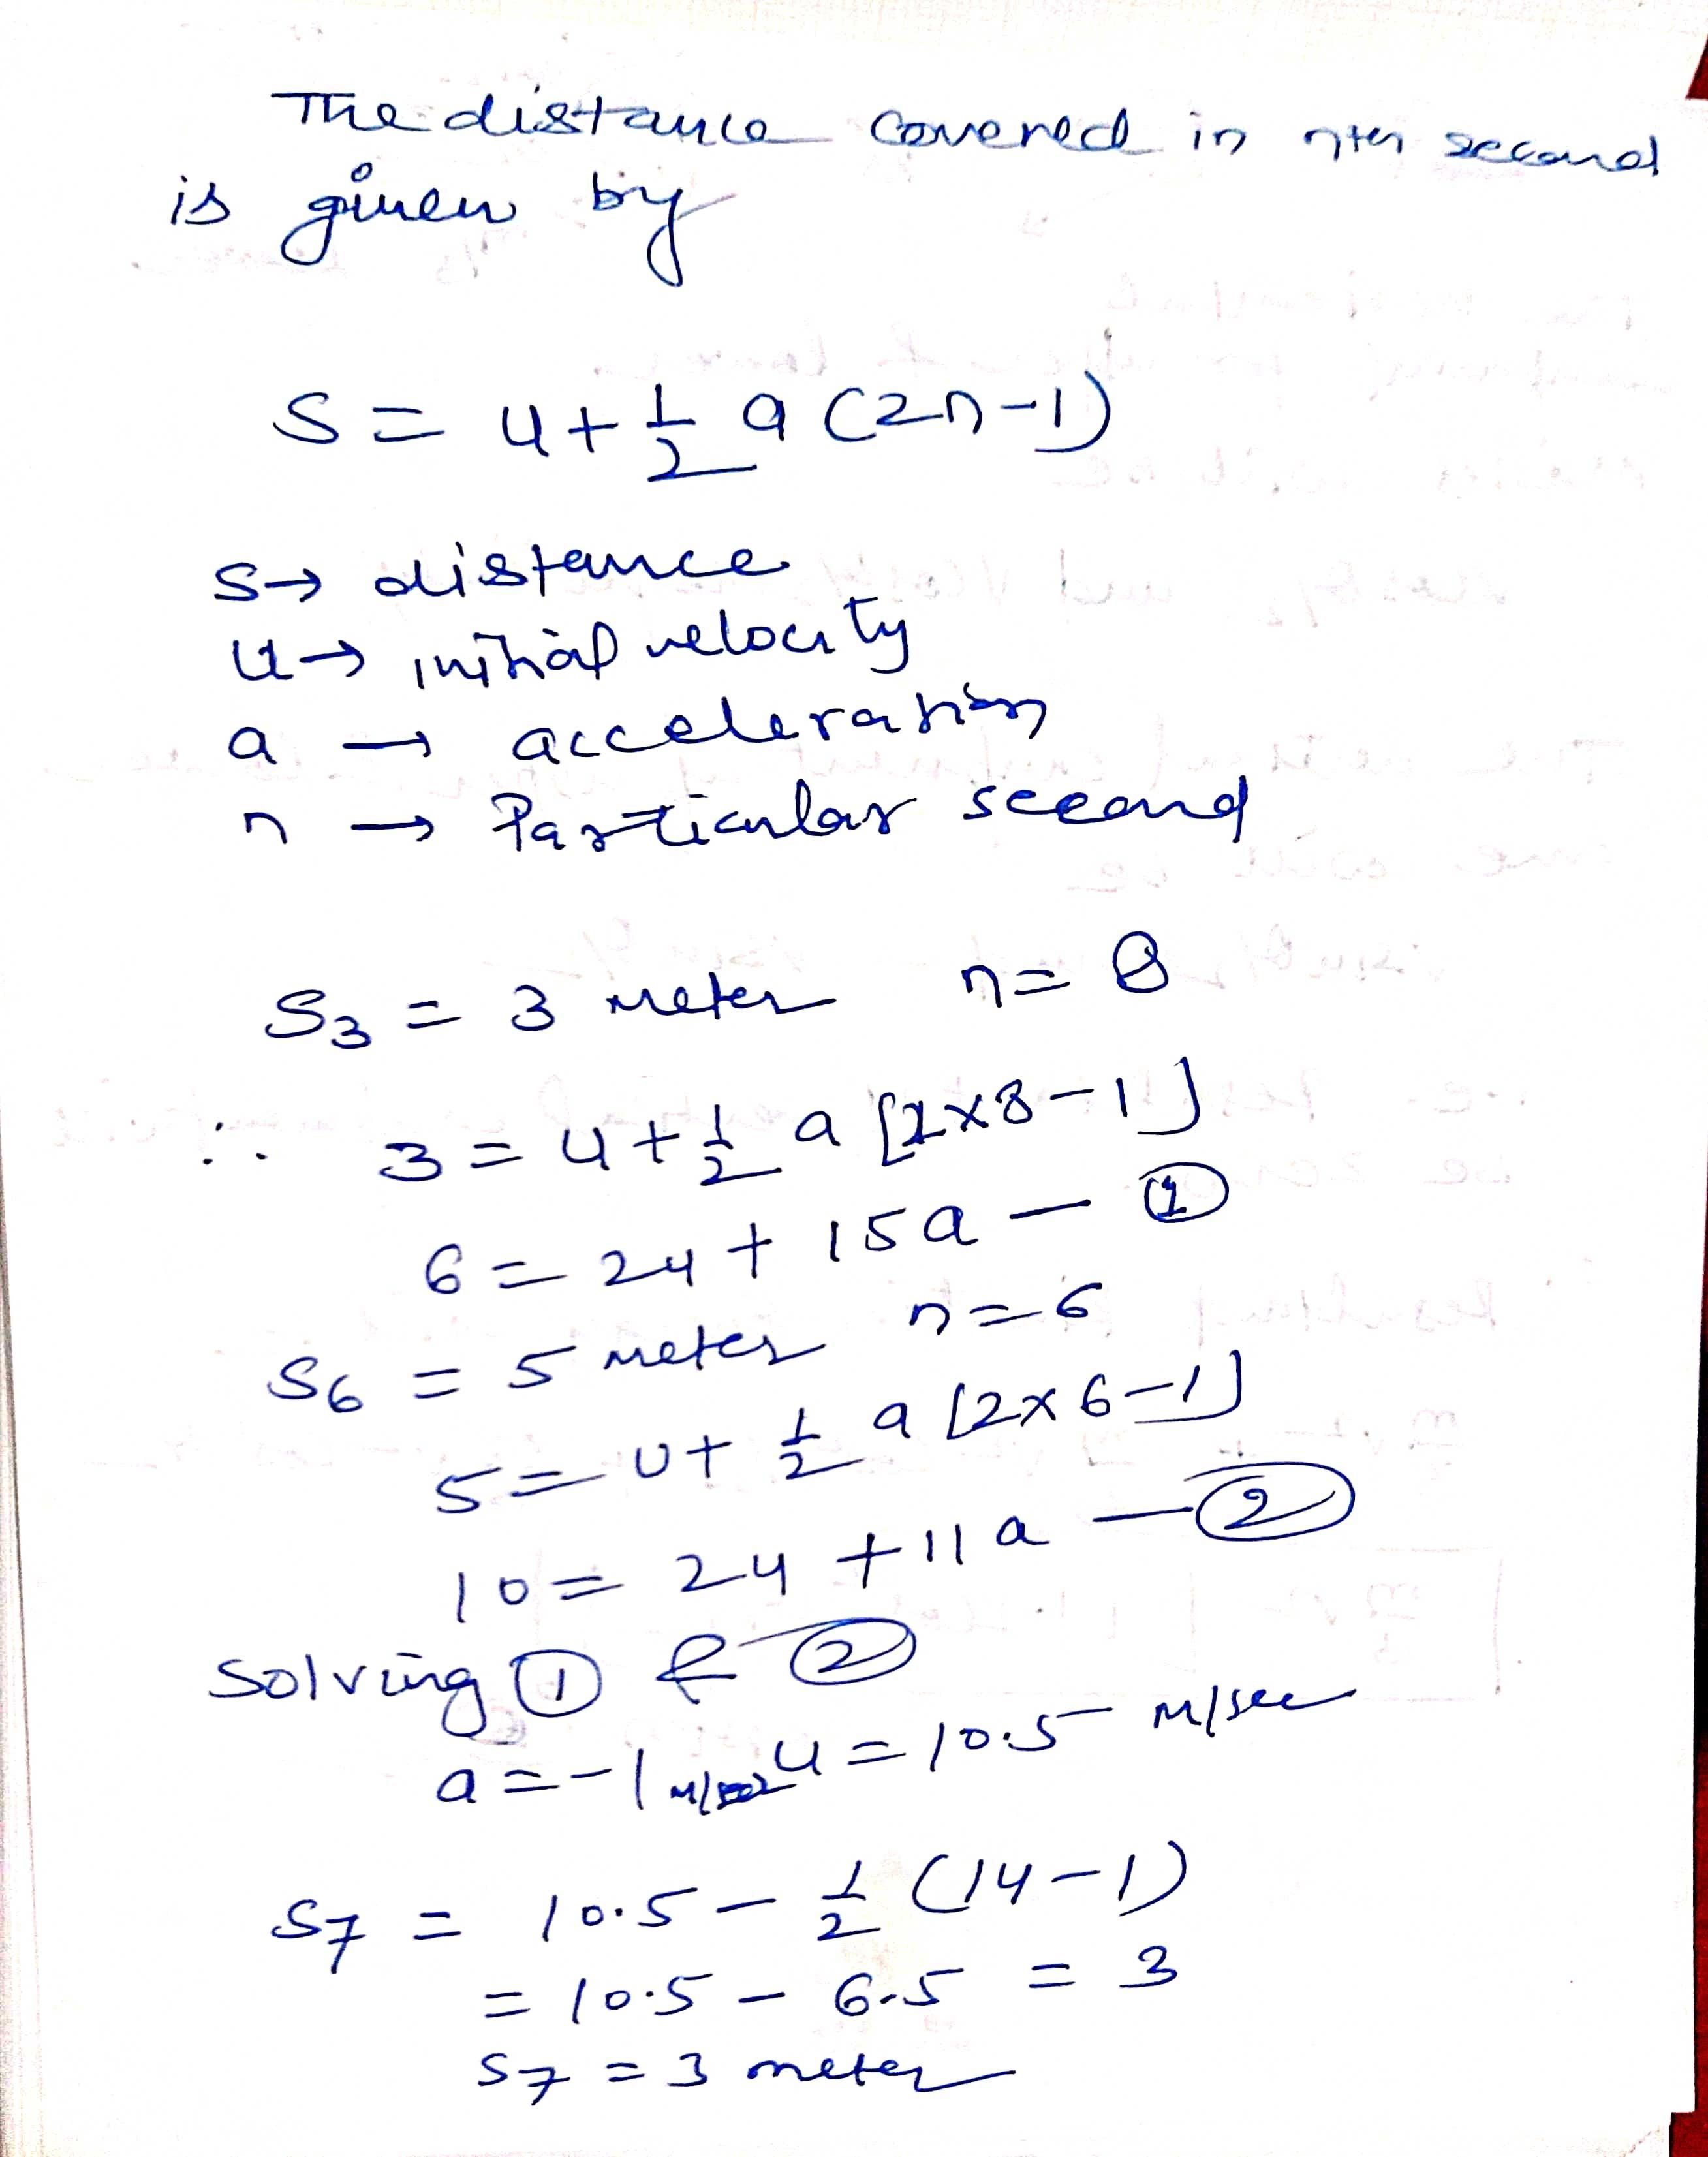 The distance covered in nth second
is given by
S = u + 1/2 a (2n-1)
S → distance
u → initial velocity
a → acceleration
n → Particular second
S3 = 3 meter n = 8
∴ 3 = u + 1/2 a [2×8-1]
6 = 2u + 15a — ①
S6 = 5 meter n = 6
5 = u + 1/2 a [2×6-1]
10 = 2u + 11a — ②
Solving ① & ②
a = -1 m/sec2 u = 10.5 m/sec
S7 = 10.5 - 1/2 (14-1)
= 10.5 - 6.5 = 3
S7 = 3 meter